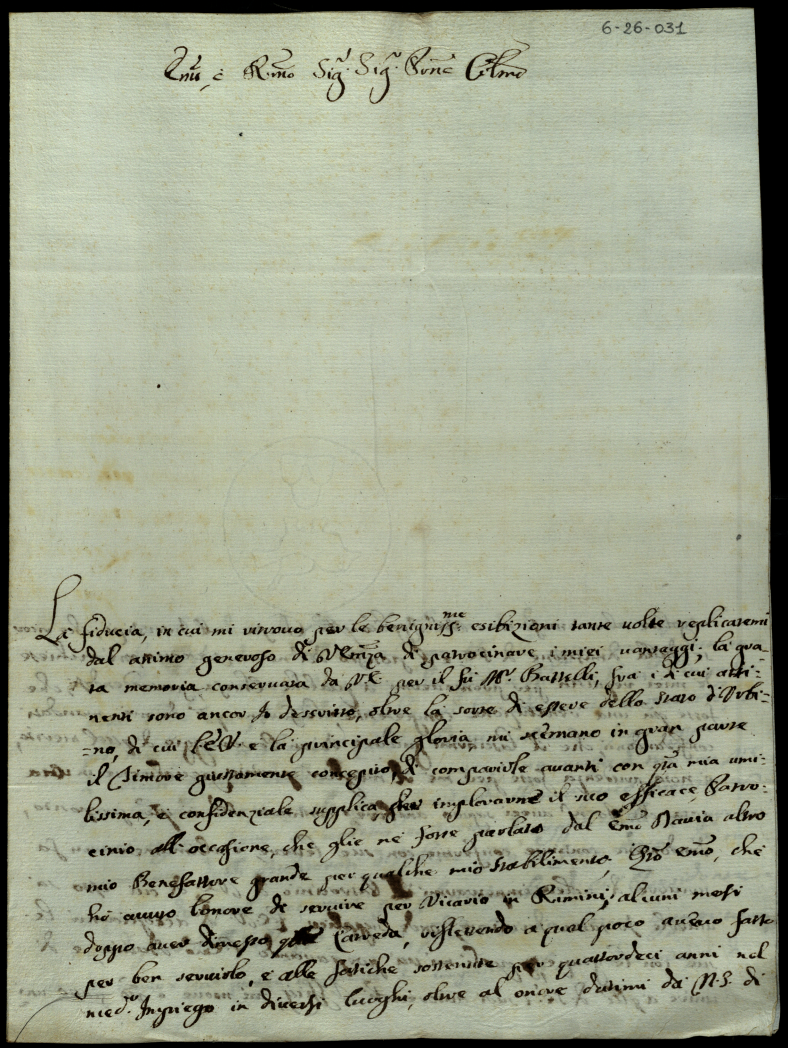 6-26-031
Emo, e Rmo Sigr. Sigr. Prone Colmo
La fiducia, in cui mi ritrovo per le benigniss:me esibizioni tante volte replicatemi
dal animo generoso di V. Emza di patrocinare i miei vantaggi; la gra=
ta memoria conservata da V.E. per il fù Mr. Battelli, fra i di cui atti=
nenti sono ancor Io descritto, oltre la sorte di essere dello Stato d'Urbi=
=no, di cui l'E.V. e la principale gloria, mi scemano in gran parte
il Timore giustamente concepito di comparirle avanti con qta mia umi=
lissima, e confidenziale supplica, per implorarne il suo efficace Patro=
cinio all'occasione, che glie ne fosse parlato dal Emo Davia altro
mio Benefattore grande per qualche mio stabilimento. Qto Emo, che
hò avuto l'onore di servire per Vicario in Rimini alcuni mesi
doppo aver dimessa Carveda, riflettendo a quel poco avevo fatto
per ben servirlo, e alle fatiche sostenute per quattordeci anni nel
med:o Impiego in diversi luoghi, oltre al onore datomi da N.S. di